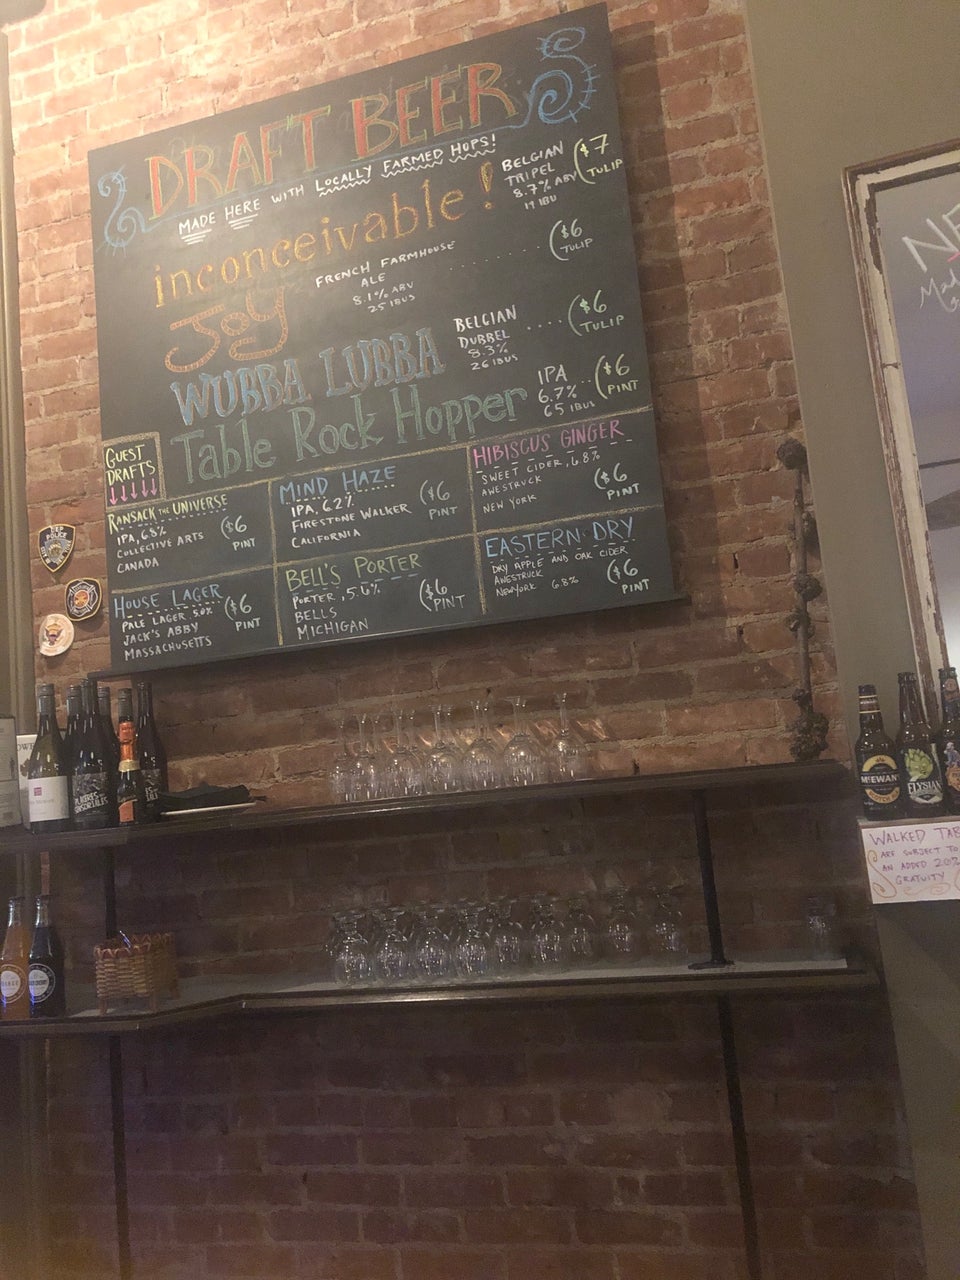 DRAFT BEER
MADE HERE WITH LOCALLY FARMED HOPS!
inconceivable!
BELGIAN
TRIPEL
8.7% ABV
19 IBU
$7
TULIP
Joy
FRENCH FARMHOUSE
ALE
8.1% ABV
25 IBUS
$6
TULIP
WUBBA LUBBA
BELGIAN
DUBBEL
8.3%
26 IBUS
$6
TULIP
Table Rock Hopper
IPA
6.7%
65 IBUS
$6
PINT
GUEST
DRAFTS
RANSACK THE UNIVERSE
IPA, 6.8%
COLLECTIVE ARTS
CANADA
$6
PINT
MIND HAZE
IPA, 6.2%
FIRESTONE WALKER
CALIFORNIA
$6
PINT
HIBISCUS GINGER
SWEET CIDER, 6.8%
AWESTRUCK
NEW YORK
$6
PINT
HOUSE LAGER
PALE LAGER, 5.0%
JACK'S ABBY
MASSACHUSETTS
$6
PINT
BELL'S PORTER
PORTER, 5.6%
BELLS
MICHIGAN
$6
PINT
EASTERN DRY
DRY APPLE AND OAK CIDER
AWESTRUCK
NEW YORK 6.8%
$6
PINT
POLICE
MCEWAN'
ELYSIAN
WALKED TAB
ARE SUBJECT TO
AN ADDED 20%
GRATUITY